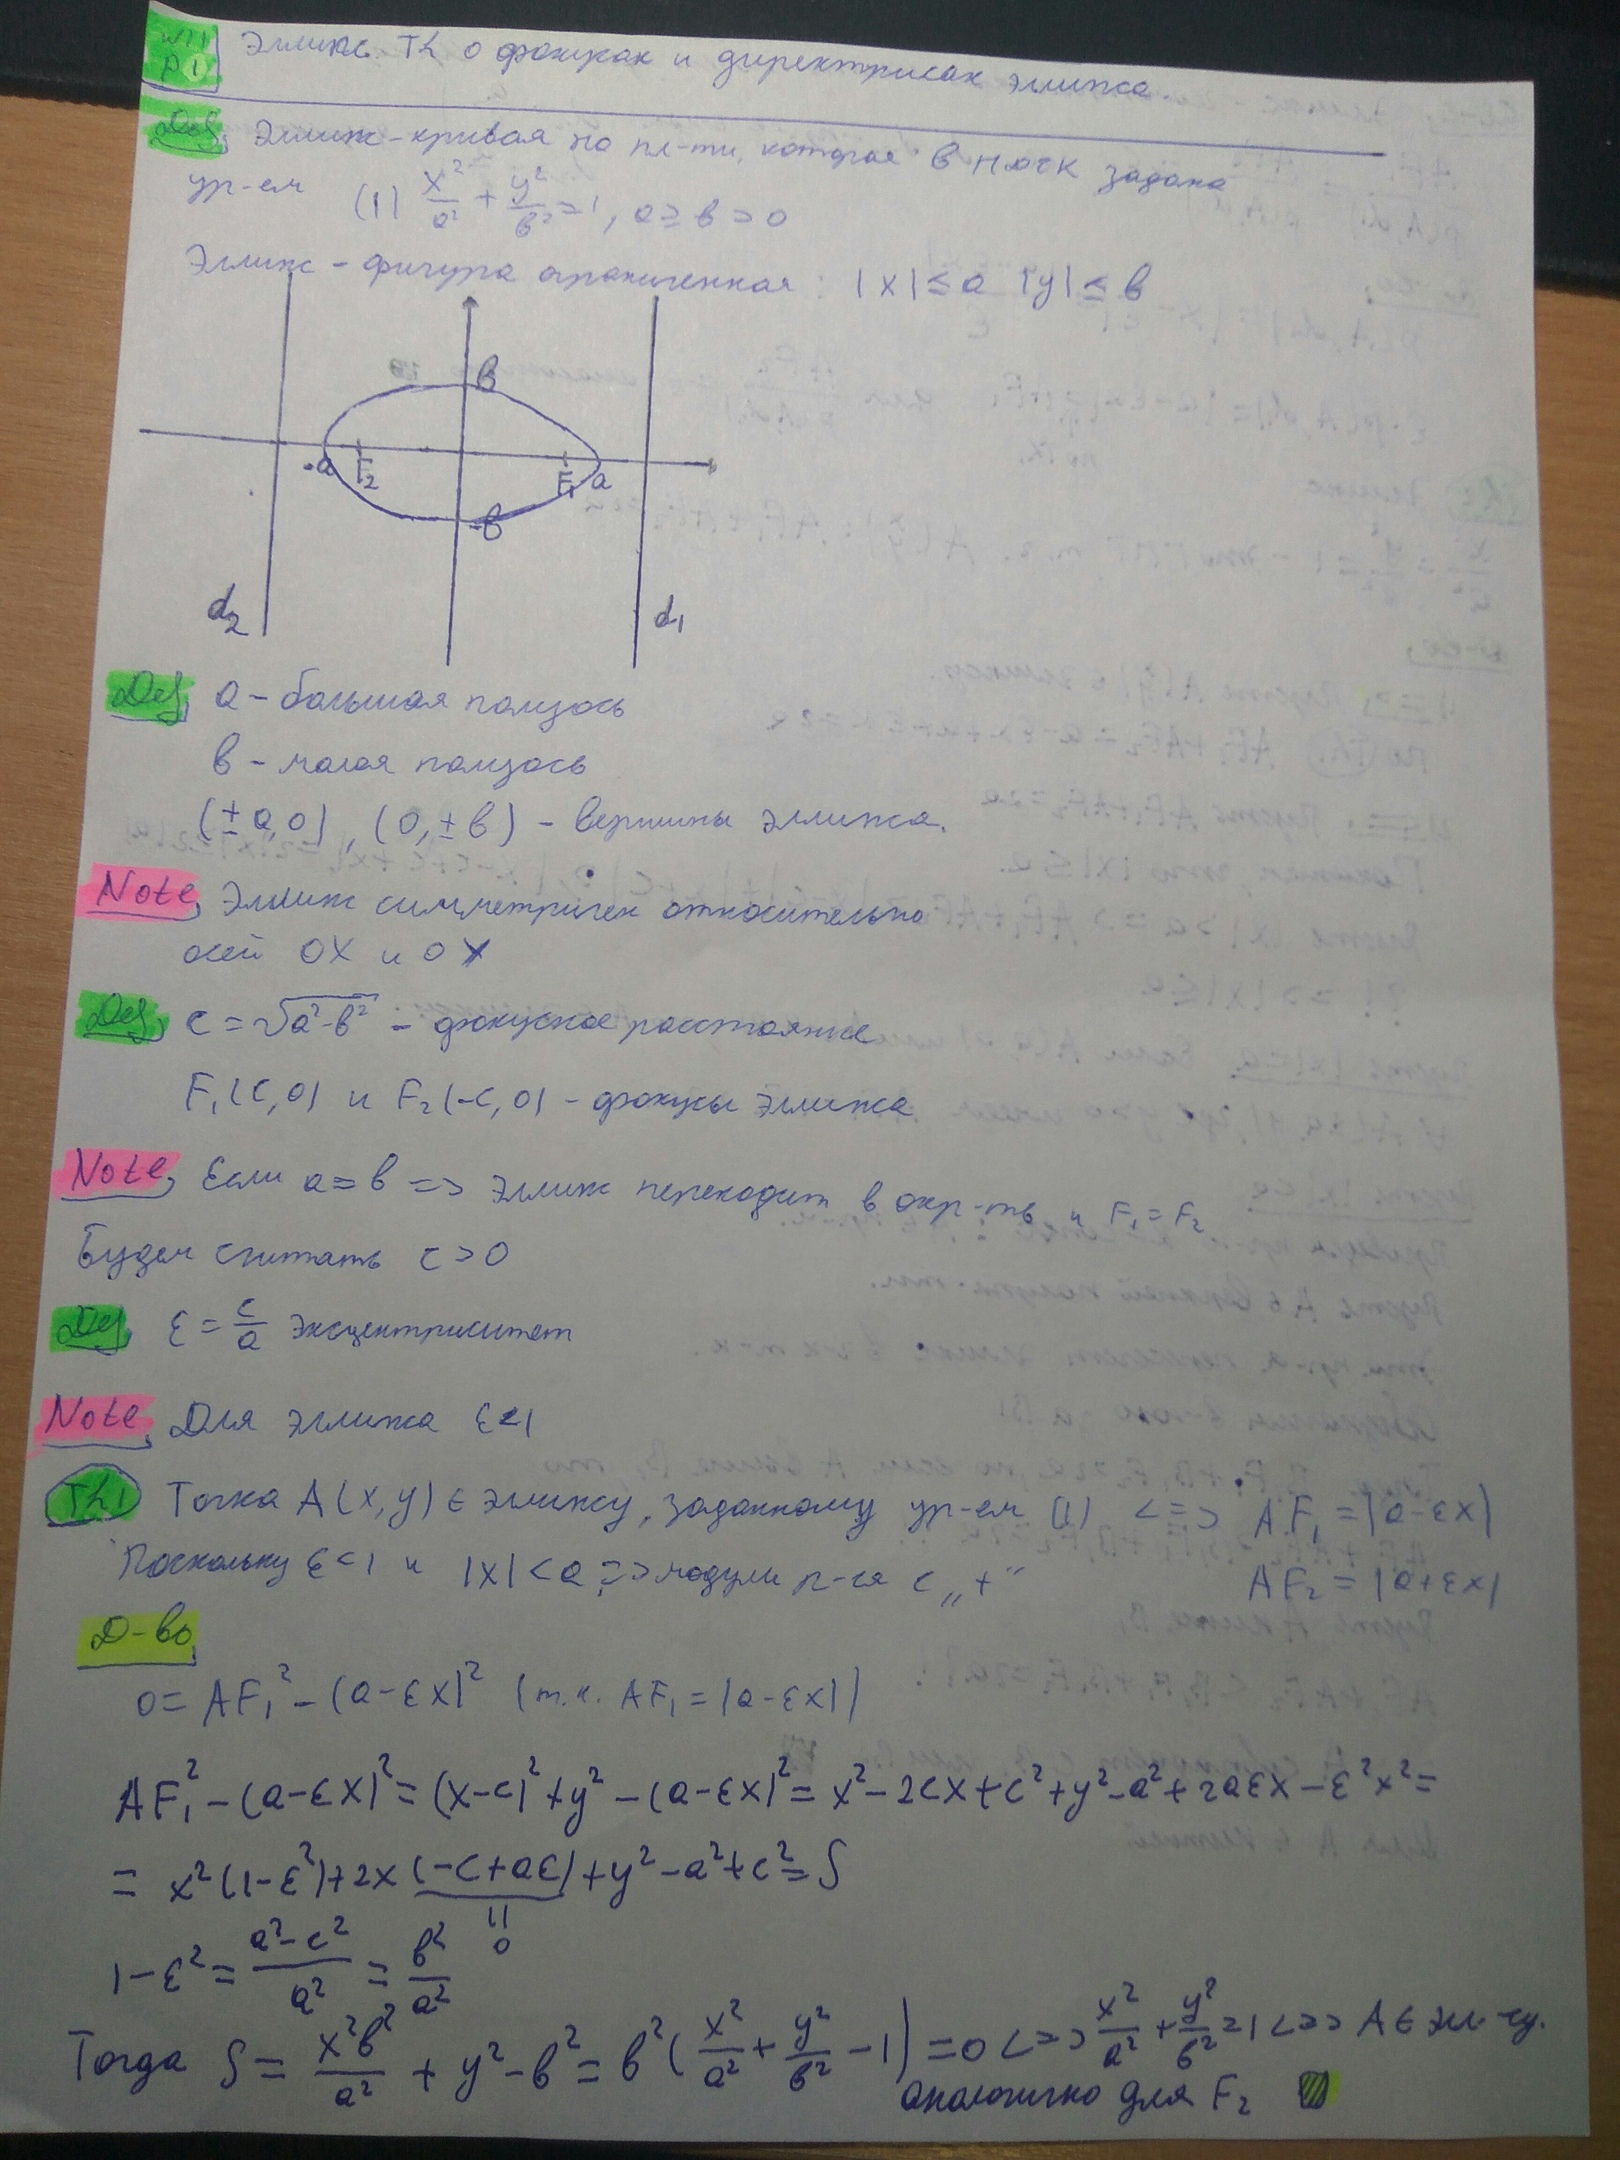 №11
p1
Эллипс. Th о фокусах и директрисах эллипса
Def, Эллипс - кривая на пл-ти, которая в НДСК задана
ур-ем (1) x²/a² + y²/в² = 1, a ≥ в > 0
Эллипс - фигура ограниченная: |x| ≤ a |y| ≤ в
в
-a F₂ F₁ a
-в
d₂ d₁
Def, a - большая полуось
в - малая полуось
(±a,0), (0,±в) - вершины эллипса.
Note, Эллипс симметричен относительно
осей OX и OY
Def, c = √(a²-в²) - фокусное расстояние
F₁(c,0) и F₂(-c,0) - фокусы эллипса
Note, Если a=в => эллипс переходит в окр-ть и F₁=F₂
Будем считать c>0
Def, ε = c/a эксцентриситет
Note, Для эллипса ε<1
Th1 Точка A(x,y) ∈ эллипсу, заданному ур-ем (1) <=> AF₁ = |a-εx|
Поскольку ε<1 и |x|<a => модули р-ся с „+“ AF₂ = |a+εx|
Д-во
0 = AF₁² - (a-εx)² (т.к. AF₁ = |a-εx|)
AF₁² - (a-εx)² = (x-c)² + y² - (a-εx)² = x² - 2cx + c² + y² - a² + 2aεx - ε²x² =
= x²(1-ε²) + 2x(-c+aε) + y² - a² + c² = S
||
0
1-ε² = (a²-c²)/a² = в²/a²
Тогда S = x²в²/a² + y² - в² = в²(x²/a² + y²/в² - 1) = 0 <=> x²/a² + y²/в² = 1 <=> A ∈ эл-су.
аналогично для F₂